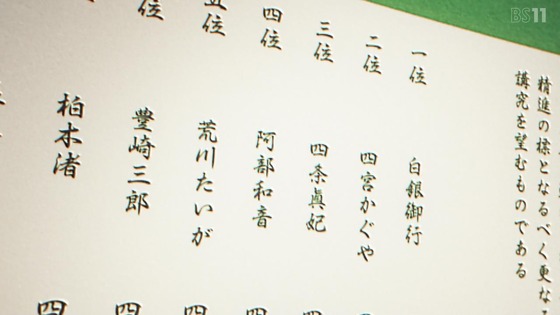 BS11
精進の様となるべく更なる
講究を望むものである
一位
白銀御行
二位
四宮かぐや
三位
四条眞妃
四位
阿部和音
五位
荒川たいが
位
豊崎三郎
柏木渚
四
四
四
四
四